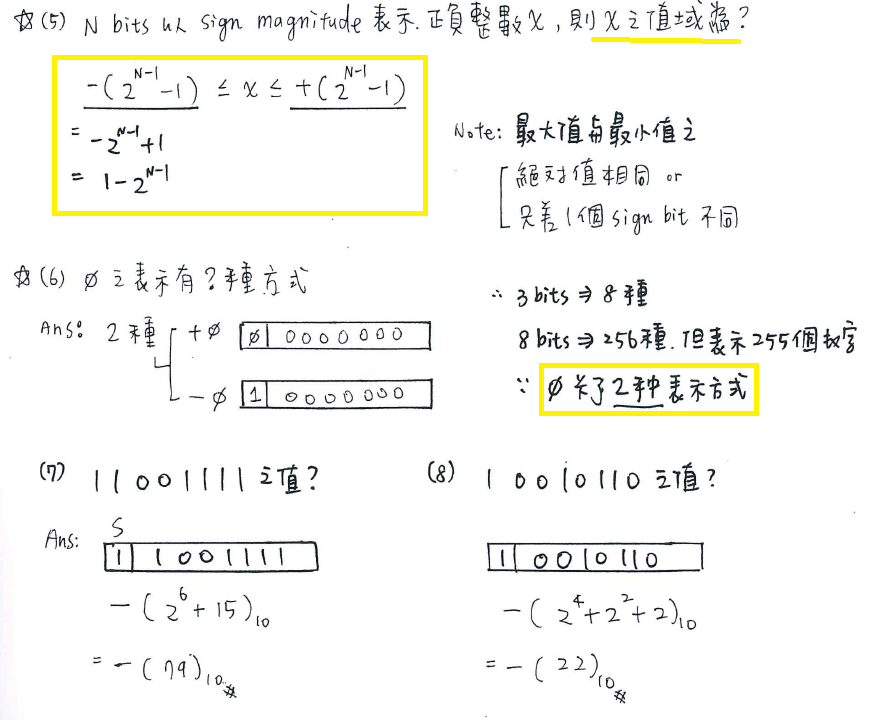 ☆(5) N bits 以 sign magnitude 表示.正負整數X,則X之值域為?
-(2^(N-1)-1) ≤ x ≤ +(2^(N-1)-1)
= -2^(N-1)+1
= 1-2^(N-1)
Note: 最大值與最小值之
絕對值相同 or
只差1個sign bit 不同
☆(6) ø 之表示有?種方式
Ans: 2種 +ø ø 0000000
-ø 1 0000000
∴ 3 bits ⇒ 8種
8 bits ⇒ 256種.但表示255個数字
∵ ø 佔了2种表示方式
(7) 11001111 之值?
Ans: S
1 1001111
-(2^6+15)₁₀
= -(79)₁₀#
(8) 10010110 之值?
1 0010110
-(2^4+2^2+2)₁₀
= -(22)₁₀#